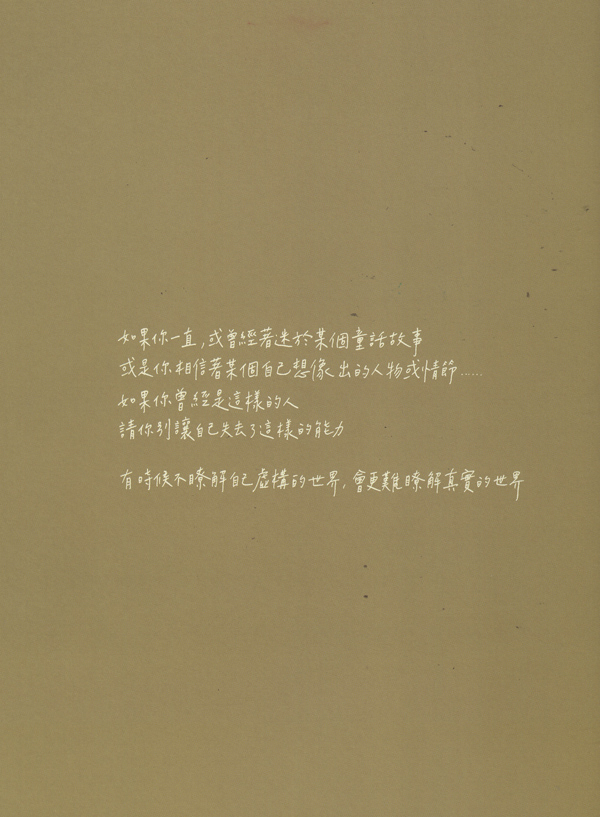 如果你一直,或曾經著迷於某個童話故事
或是你相信著某個自己想像出的人物或情節.....
如果你曾經是這樣的人
請你別讓自己失去了這樣的能力
有時候不瞭解自己虛構的世界,會更難瞭解真實的世界